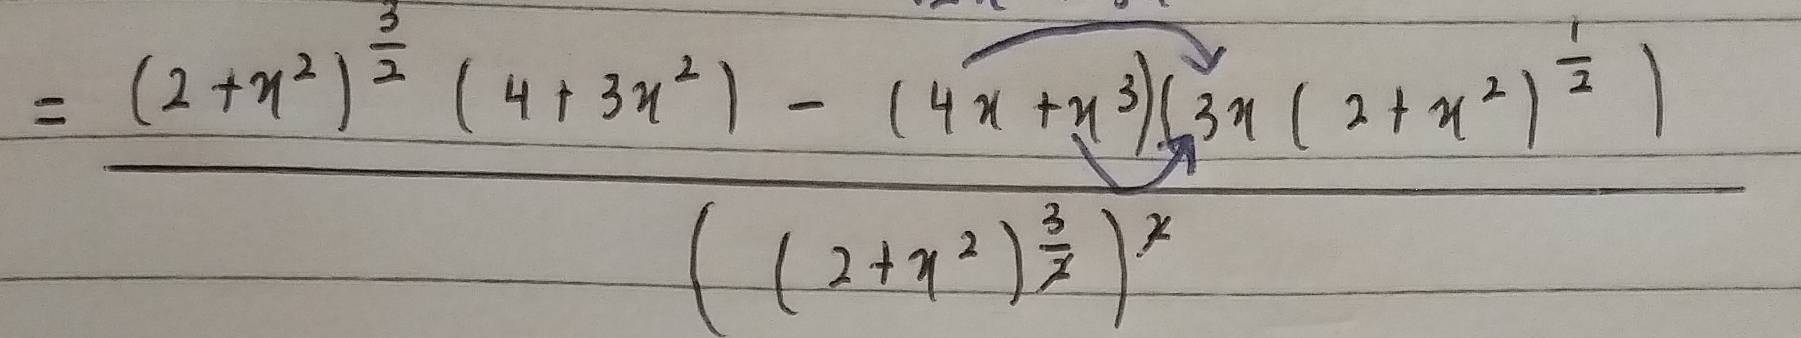 = (2+x²)^{3/2} (4+3x²) - (4x+x³)(3x(2+x²)^{1/2})
((2+x²)^{3/2})^2